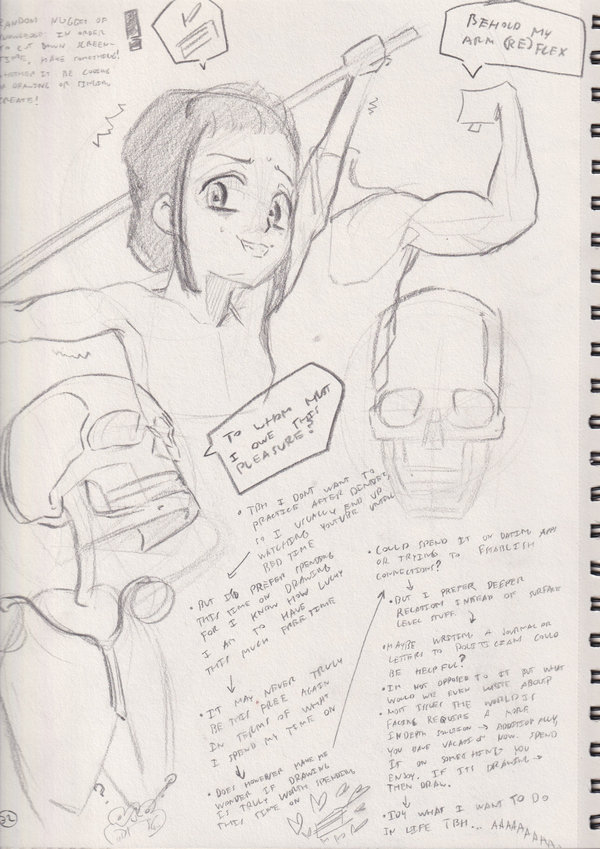 RANDOM NUGGET OF
KNOWLEDGE: IN ORDER
TO CUT DOWN SCREEN-
TIME, MAKE SOMETHING!
WHETHER IT BE CODING
OR DRAWING OR
CREATE!
BEHOLD MY
ARM (RE)FLEX
TO WHOM MUST
I OWE THIS
PLEASURE?
• TBH I DONT WANT TO
PRACTICE AFTER DINNER,
SO I USUALLY END UP
WATCHING YOUTUBE UNTIL
BED TIME
• BUT I'D PREFER SPENDING
THIS TIME ON DRAWING
FOR I KNOW HOW LUCKY
I AM TO HAVE
THIS MUCH FREE TIME
• IT MAY NEVER TRULY
BE THIS FREE AGAIN
IN TERMS OF WHAT
I SPEND MY TIME ON
• DOES HOWEVER MAKE ME
WONDER IF DRAWING
IS TRULY WORTH SPENDING
THIS TIME ON
• COULD SPEND IT ON DATING APPS
OR TRYING TO ESTABLISH
CONNECTIONS?
• BUT I PREFER DEEPER
RELATIONS INSTEAD OF SURFACE
LEVEL STUFF.
• MAYBE WRITING A JOURNAL OR
LETTERS TO POLITICIANS COULD
BE HELPFUL?
• IM NOT OPPOSED TO IT BUT WHAT
WOULD WE EVEN WRITE ABOUT
• MOST ISSUES THE WORLD IS
FACING REQUIRE A MORE
INDEPTH SOLUTION → ADDITIONALLY,
YOU ON VACATION NOW. SPEND
IT ON SOMETHING YOU
ENJOY. IF ITS DRAWING →
THEN DRAW.
• IDK WHAT I WANT TO DO
IN LIFE TBH... AAAAAAAA..
?
32